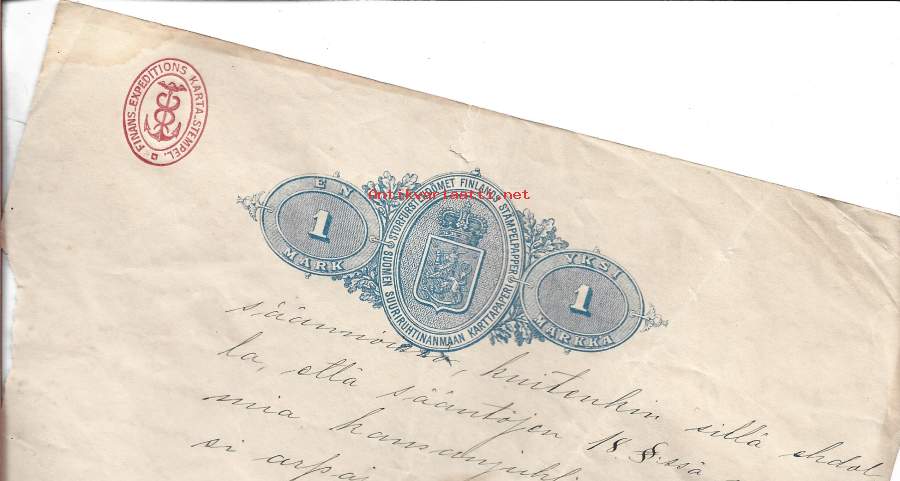 FINANS-EXPEDITIONS KARTA-STEMPEL.
EN
1
MARK
STORFURSTENDÖMET FINLANDS STÄMPELPAPPER
SUOMEN SUURIRUHTINANMAAN KARTTAPAPERI
YKSI
1
MARKKA
Antikvariaatti.net
säännöissä, kuitenkin sillä ehdol
la, että sääntöjen 18 §:ssä
mia kansanjuhl
ei arpa